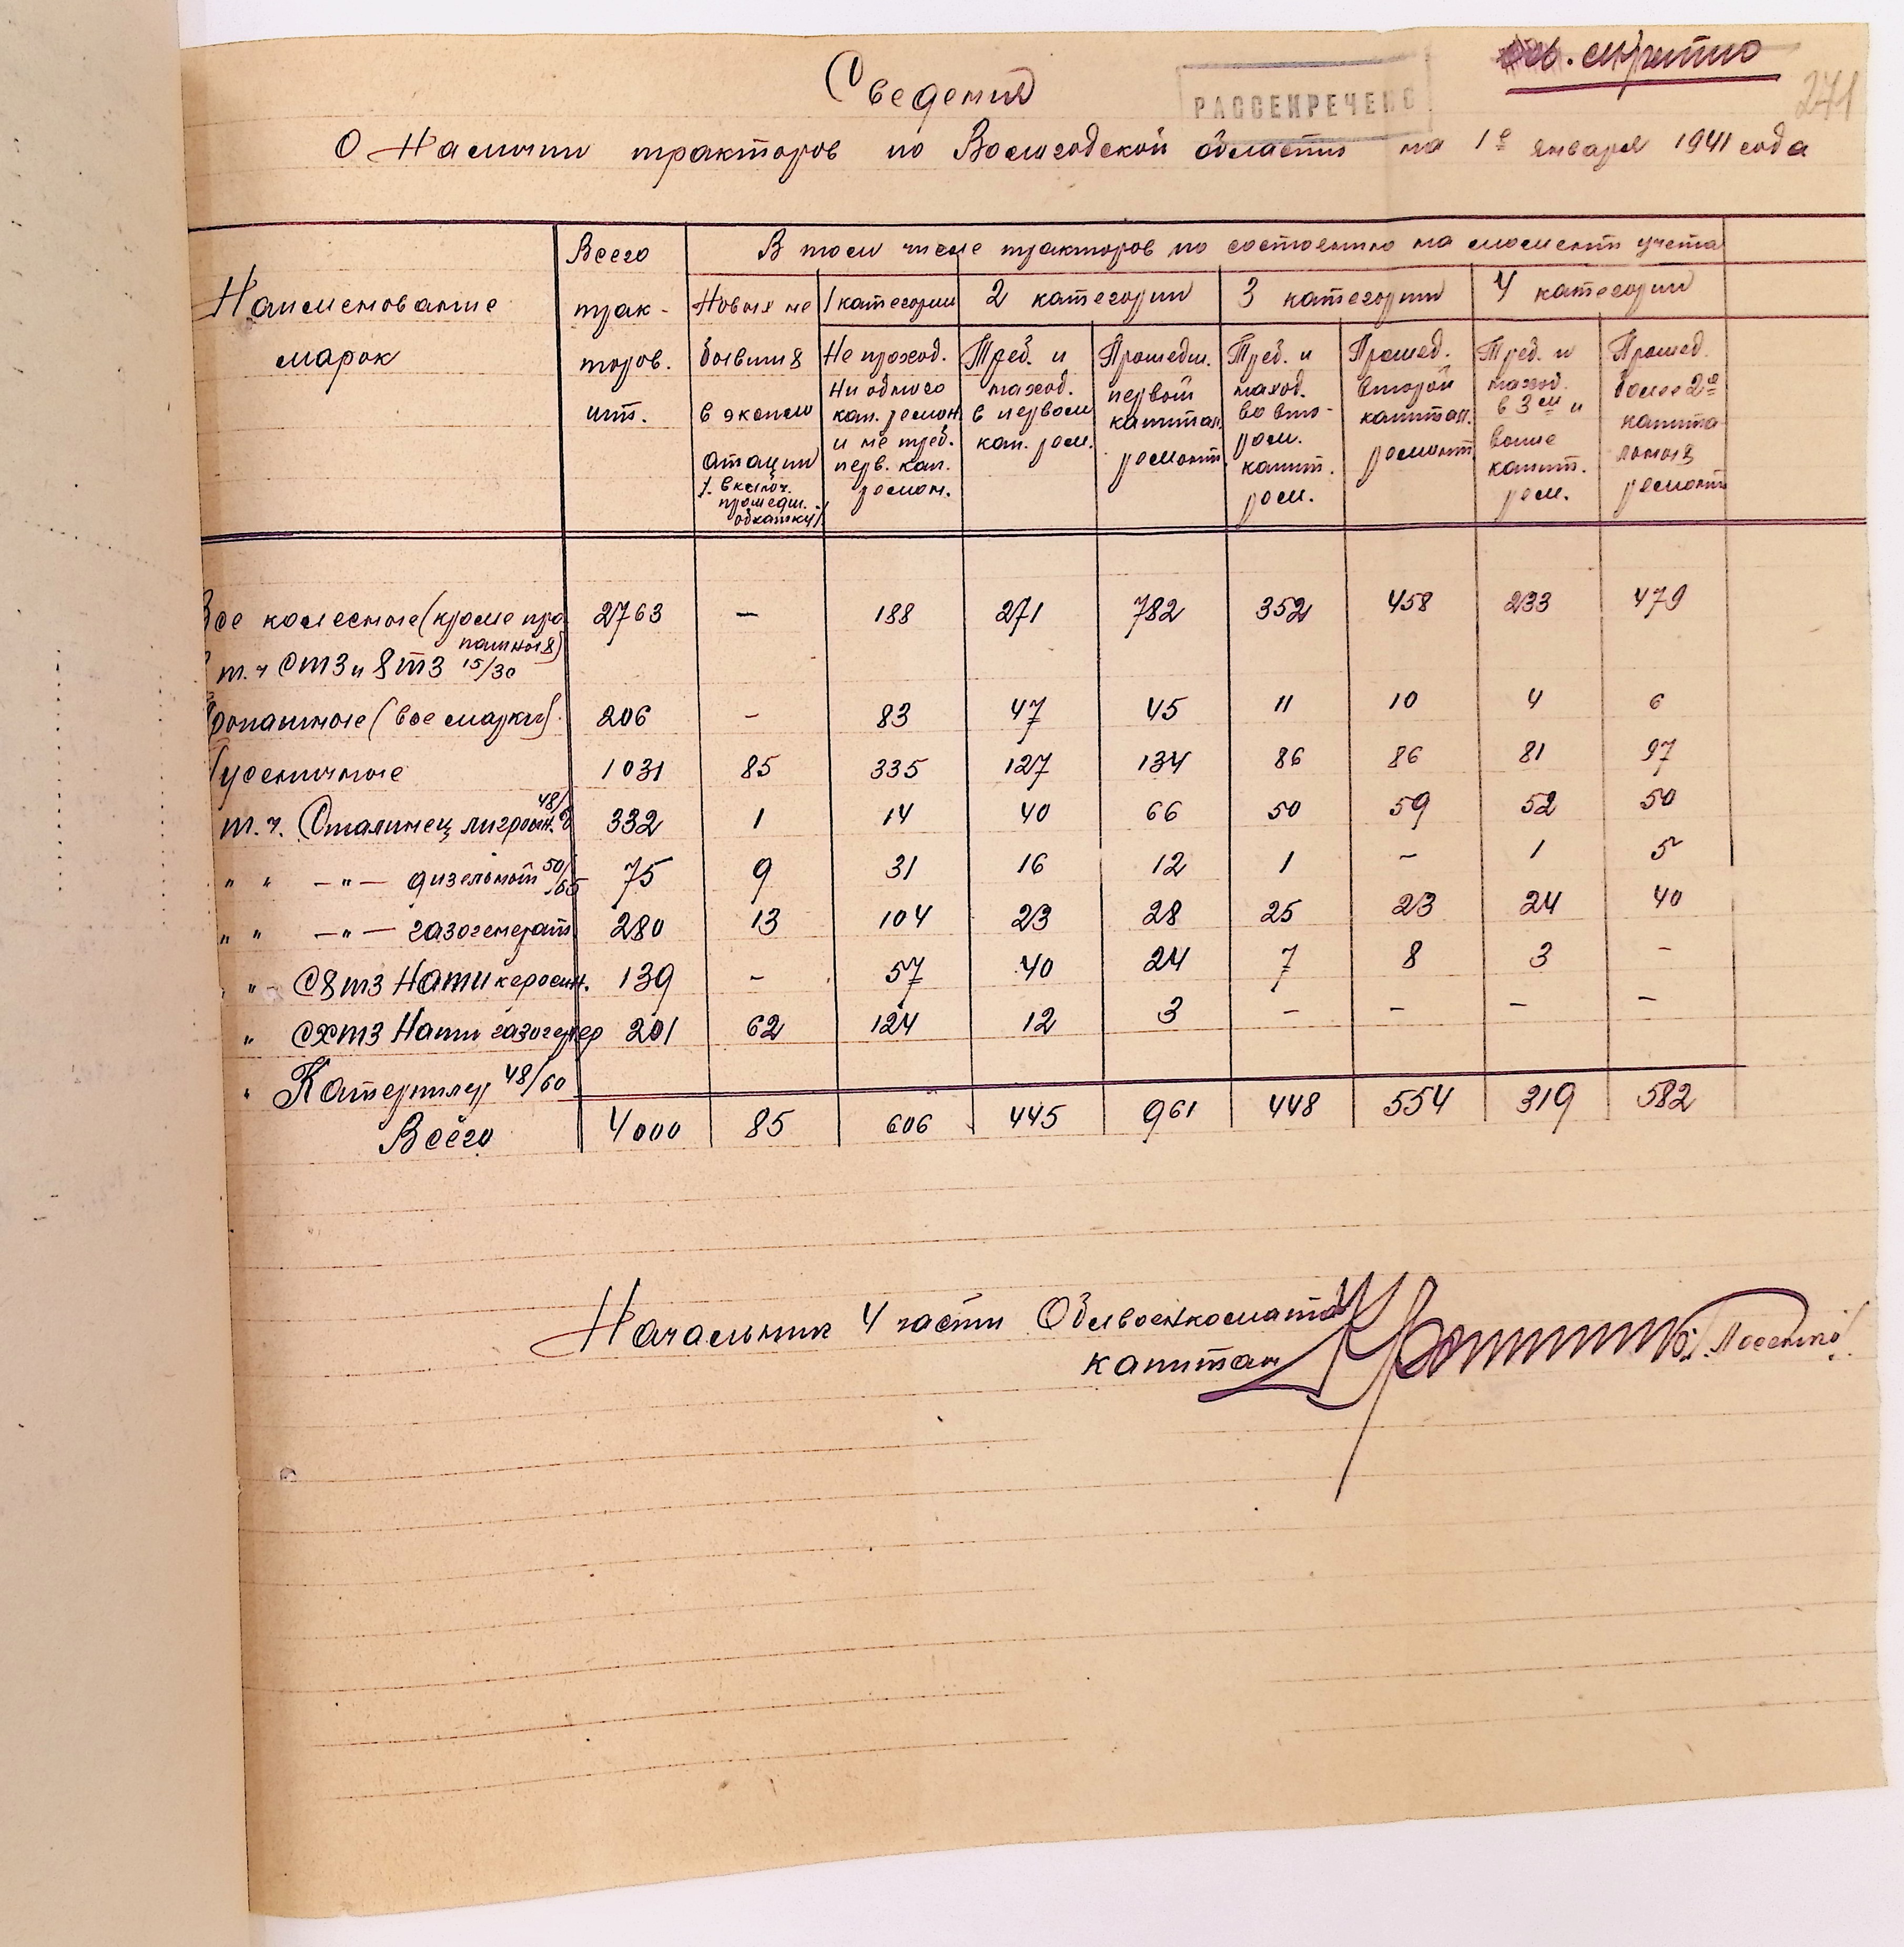 сов. секретно
271
Сведения
РАССЕКРЕЧЕНО
О Наличии тракторов по Вологодской области на 1е января 1941 года
Наименование марок
Всего трак- торов. шт.
В том числе тракторов по состоянию на момент учета
Новых не бывших в эксплоатации /. включ. прошедш. обкатку/
1 категории
2 категории
3 категории
4 категории
Не проход. ни одного кап. ремон. и не треб. перв. кап. ремон.
Треб. и наход. в первом кап. рем.
Прошедш. первый капитал. ремонт.
Треб. и наход. во вто- ром. капит. рем.
Прошед. второй капитал. ремонт
Треб. и наход. в 3ем и выше капит. рем.
Прошед. более 2х капита льных ремонт
Все колесные (кроме про пашных) 2763 — 188 271 782 352 458 233 479
т. ч СТЗ и ХТЗ 15/30
Пропашные (все марки). 206 - 83 47 45 11 10 4 6
Гусеничные 1031 85 335 127 134 86 86 81 97
т. ч. Сталинец лигроин. 48/ 332 1 14 40 66 50 59 52 50
" " —"— дизельный 50/65 75 9 31 16 12 1 - 1 5
" " —"— газогенерат 280 13 104 23 28 25 23 24 40
" СХТЗ Нати керосин. 139 - 57 40 24 7 8 3 -
" СХТЗ Нати газогенер 201 62 124 12 3 - - - -
" Катерпилер 48/60
Всего 4000 85 606 445 961 448 554 319 582
Начальник 4 части Облвоенкомата
капитан